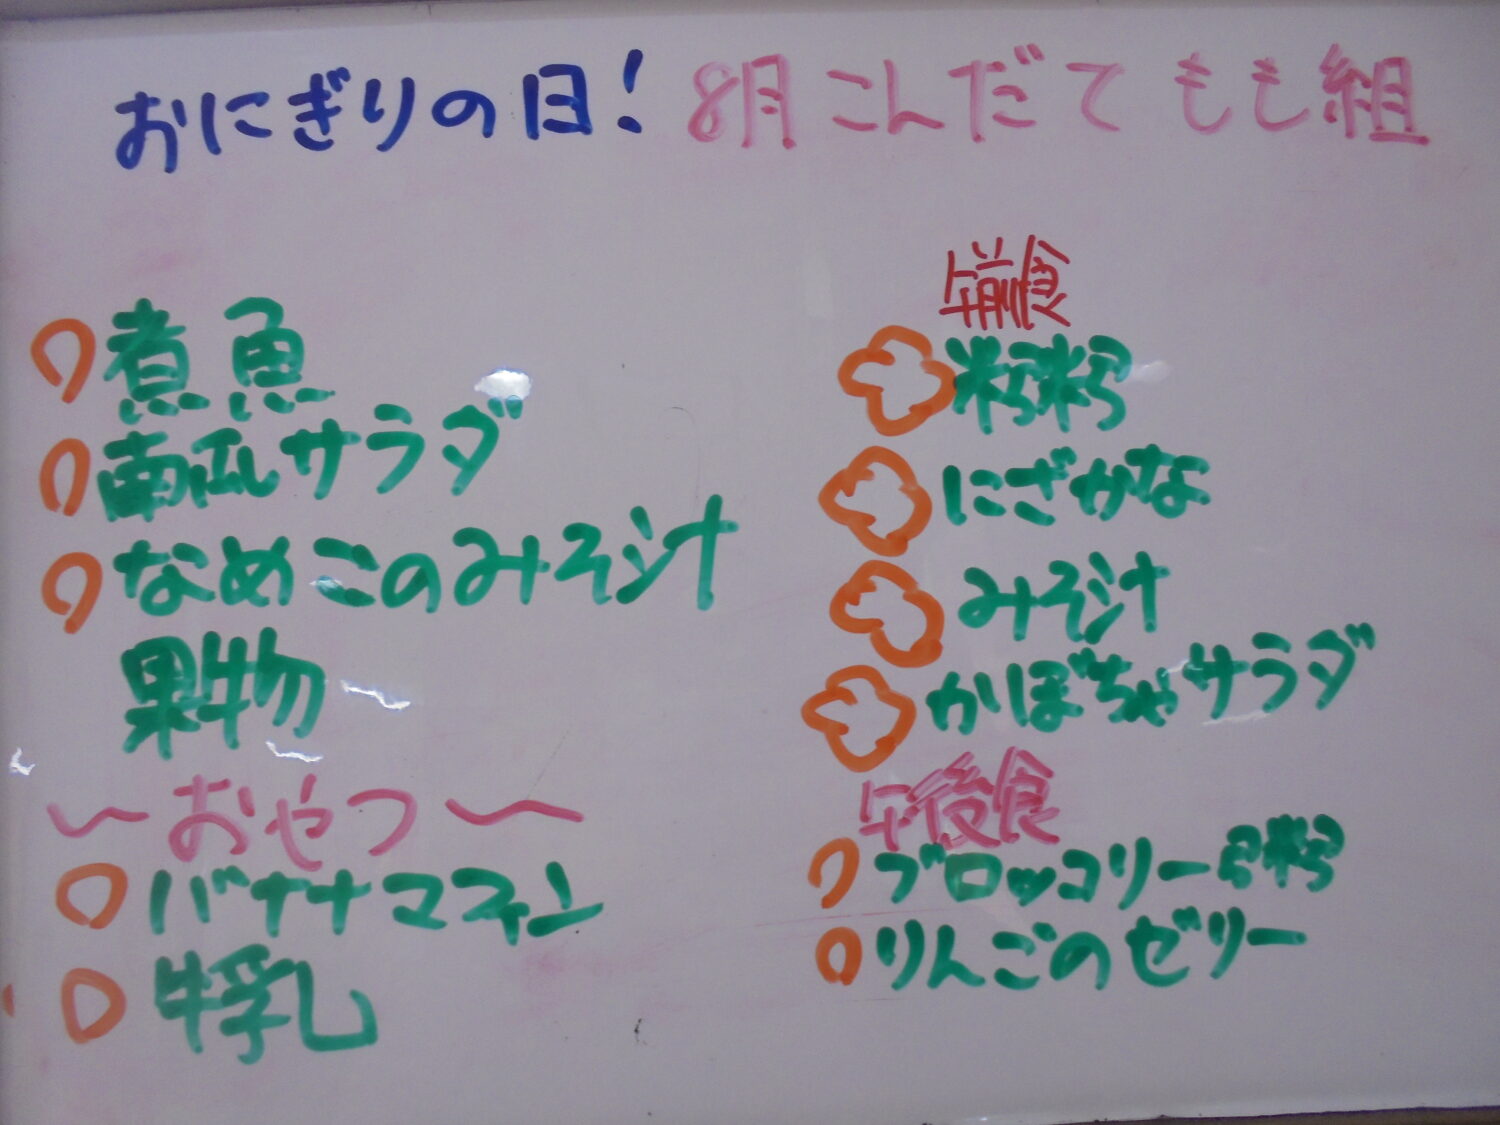 おにぎりの日!
8月こんだて もも組
煮魚
南瓜サラダ
なめこのみそ汁
果物
~おやつ~
バナナマフィン
牛乳
午前食
粥
にざかな
みそ汁
かぼちゃサラダ
午後食
ブロッコリー粥
りんごのゼリー